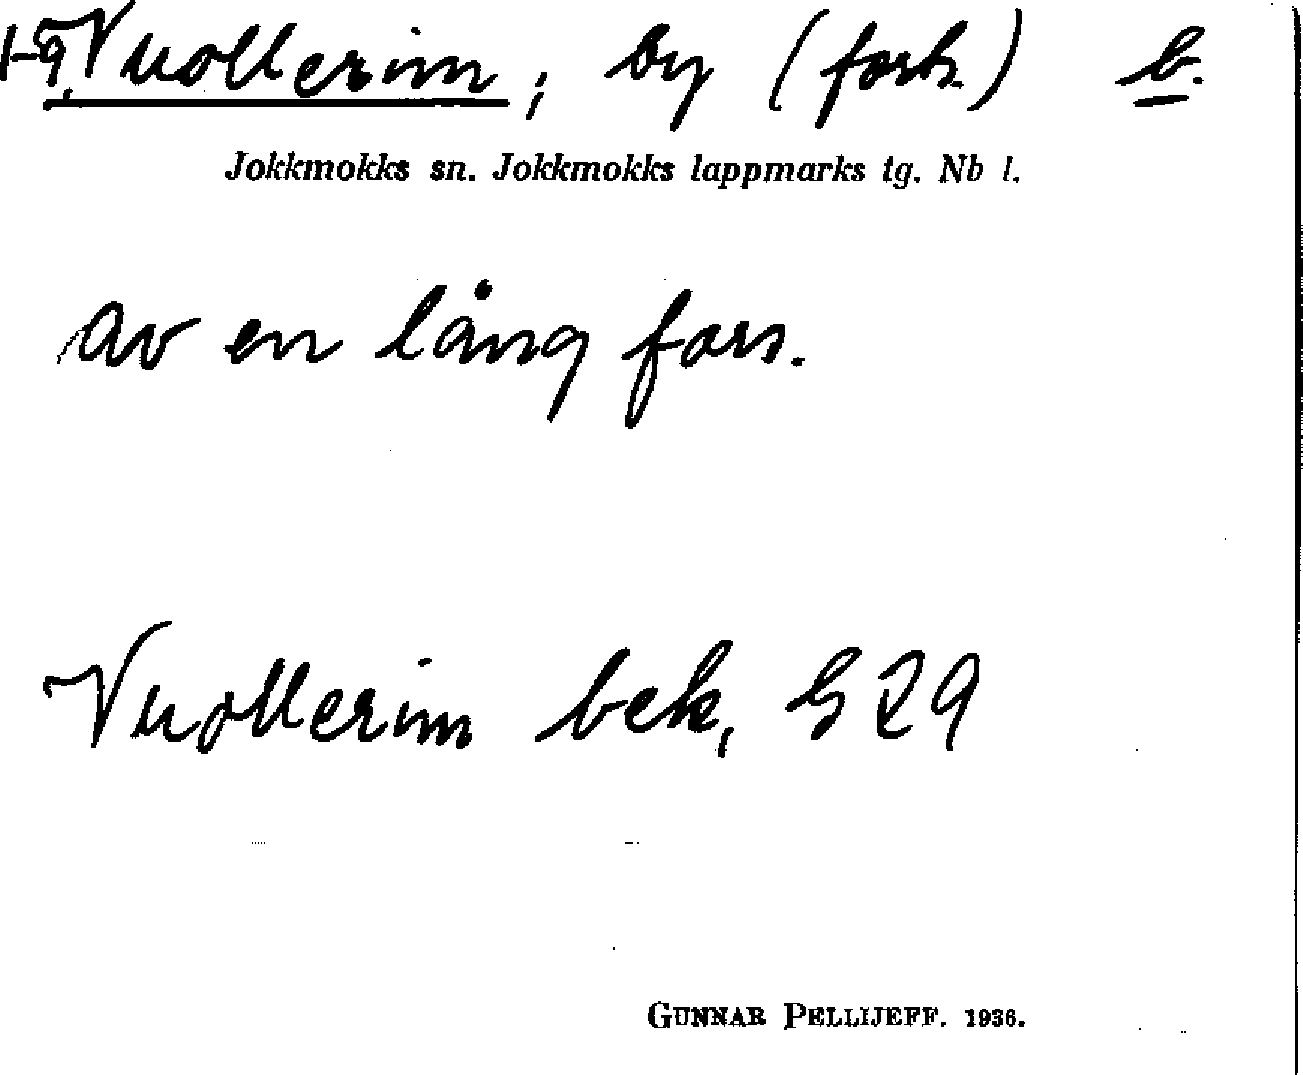 1-9, Vuollerim, by (forts.) b.
Jokkmokks sn. Jokkmokks lappmarks tg. Nb l.
av en lång fors.
Vuollerim bek, G 29
GUNNAR PELLIJEFF. 1936.